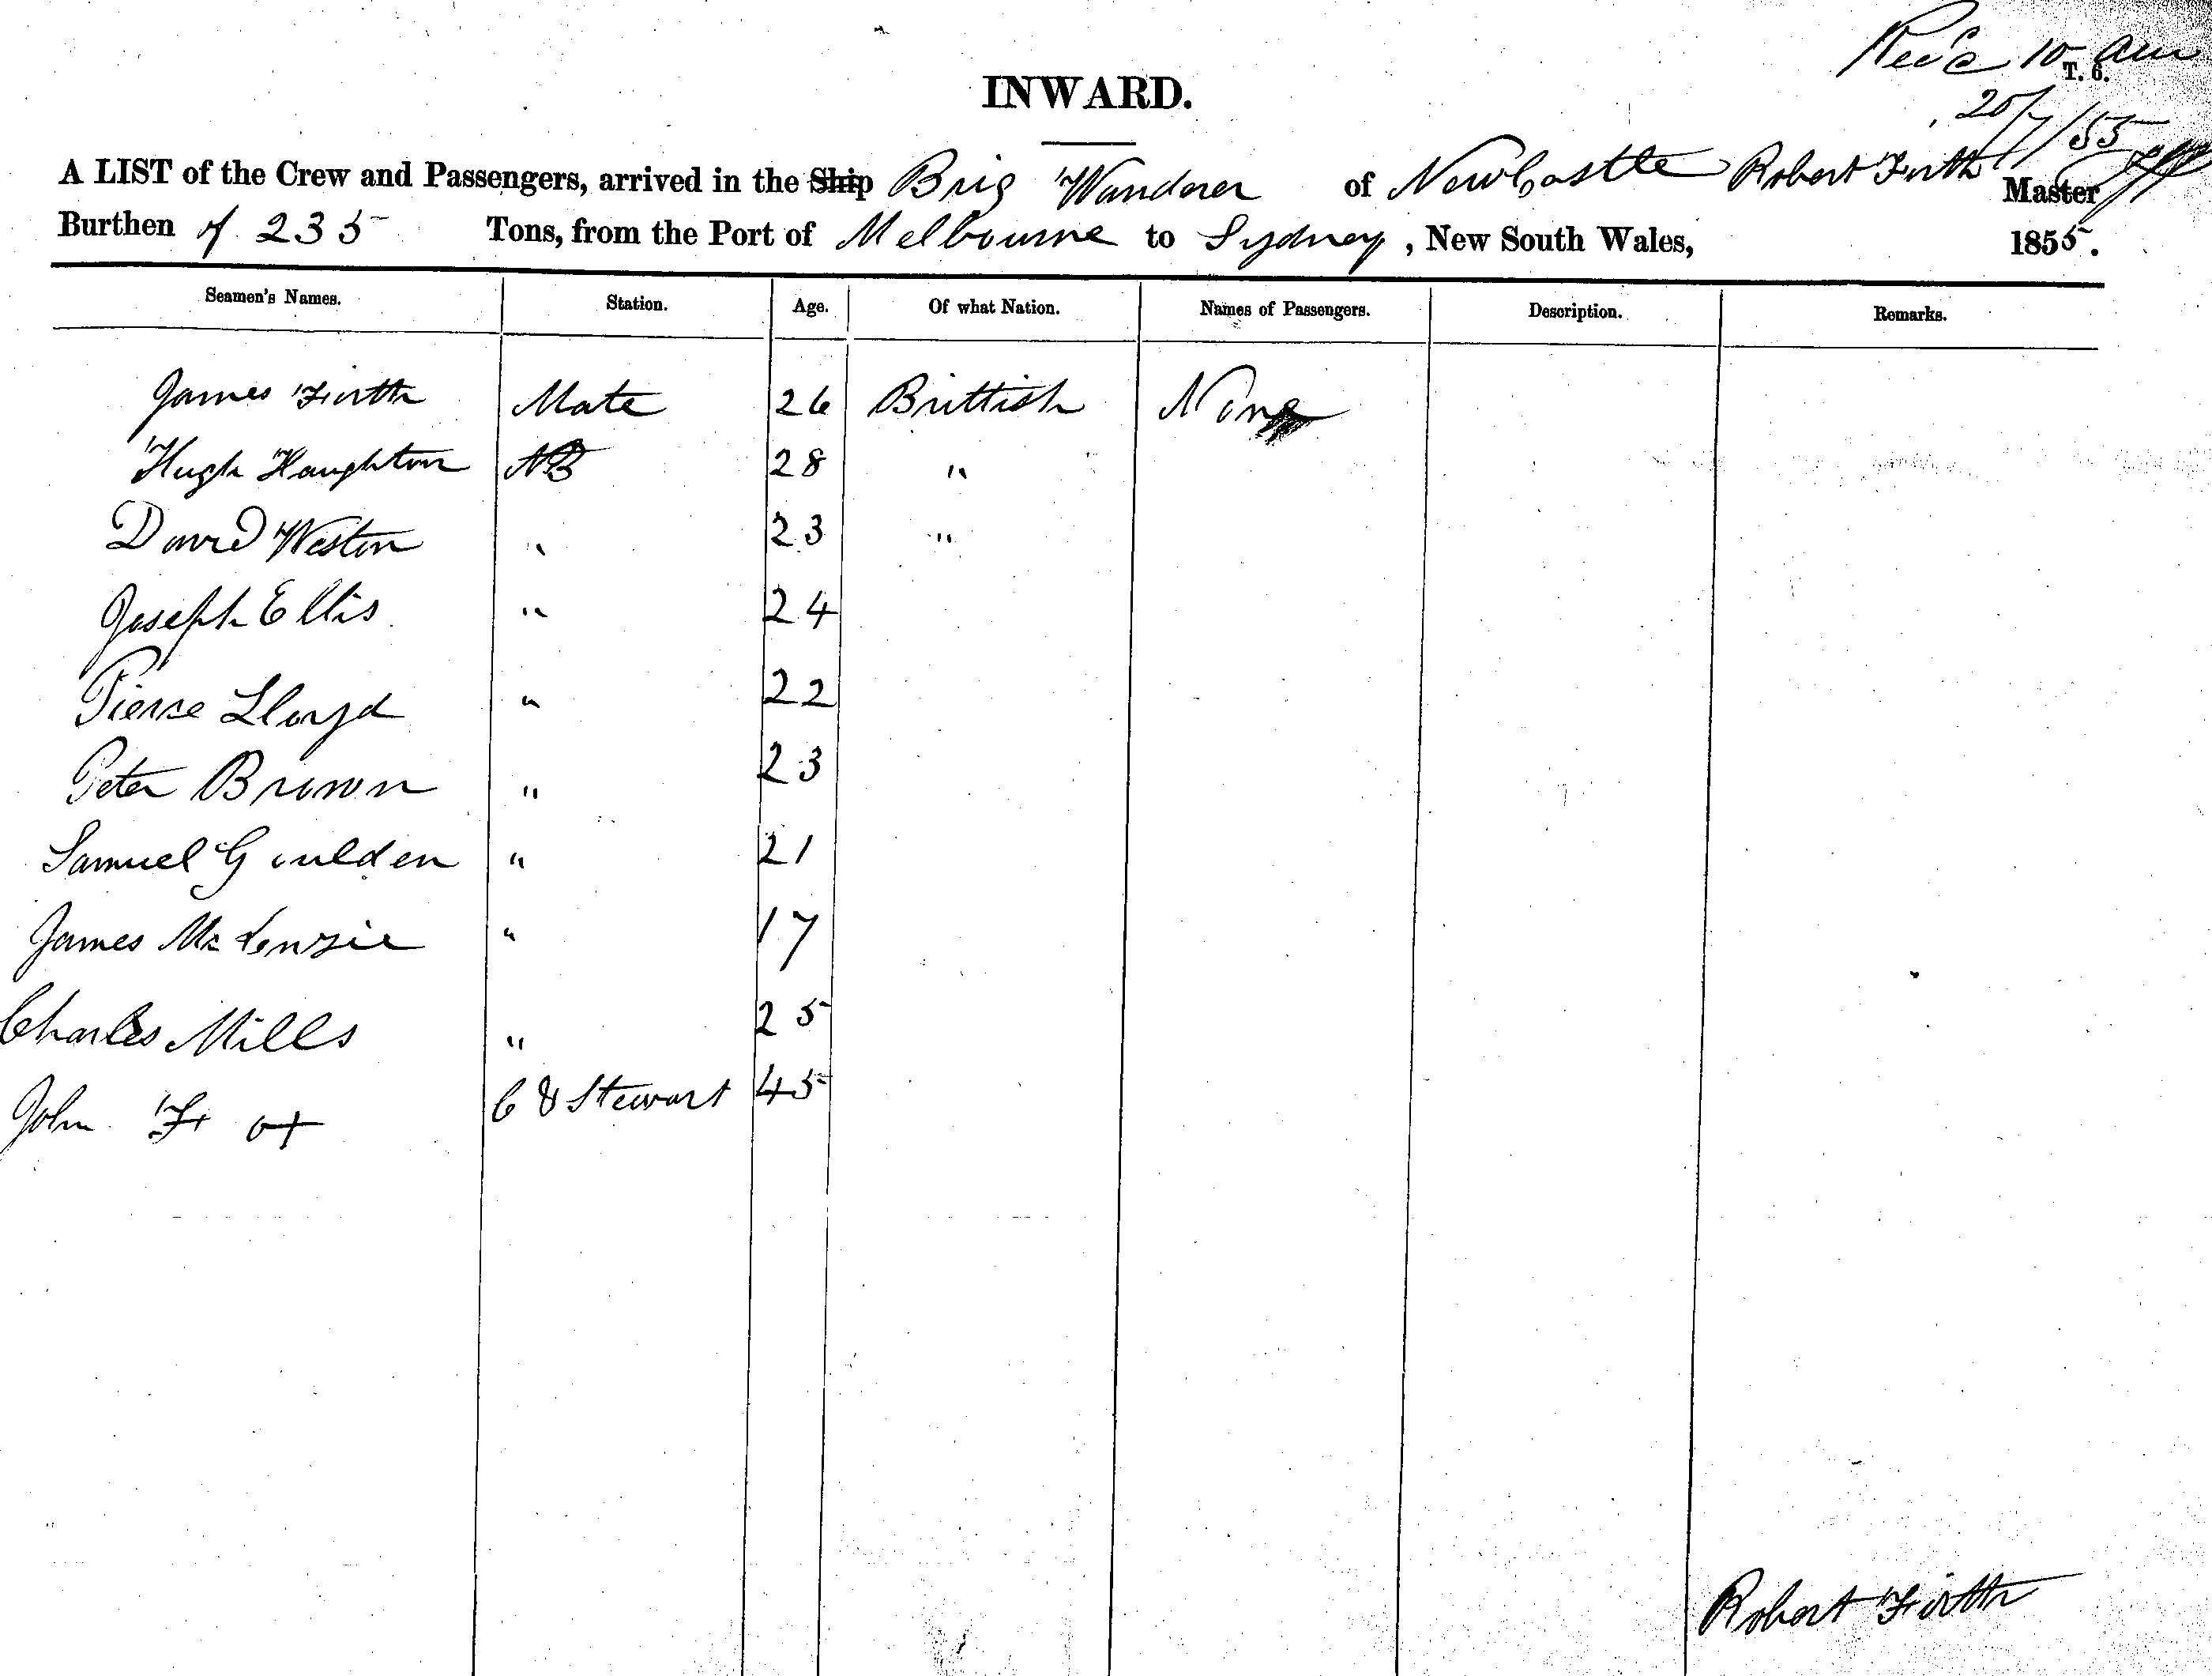 Rec'd 10 am
T. 6.
20/7/55
INWARD.
A LIST of the Crew and Passengers, arrived in the Ship Brig Wanderer of Newcastle Robert Firth Master
Burthen of 235 Tons, from the Port of Melbourne to Sydney, New South Wales, 1855.
Seamen's Names. Station. Age. Of what Nation. Names of Passengers. Description. Remarks.
James Firth Mate 26 Brittish None
Hugh Haughton AB 28 "
David Weston " 23 "
Joseph Ellis " 24
Pierse Lloyd " 22
Peter Brown " 23
Samuel Goulden " 21
James McKenzie " 17
Charles Mills " 25
John Fox C & Stewart 45
Robert Firth